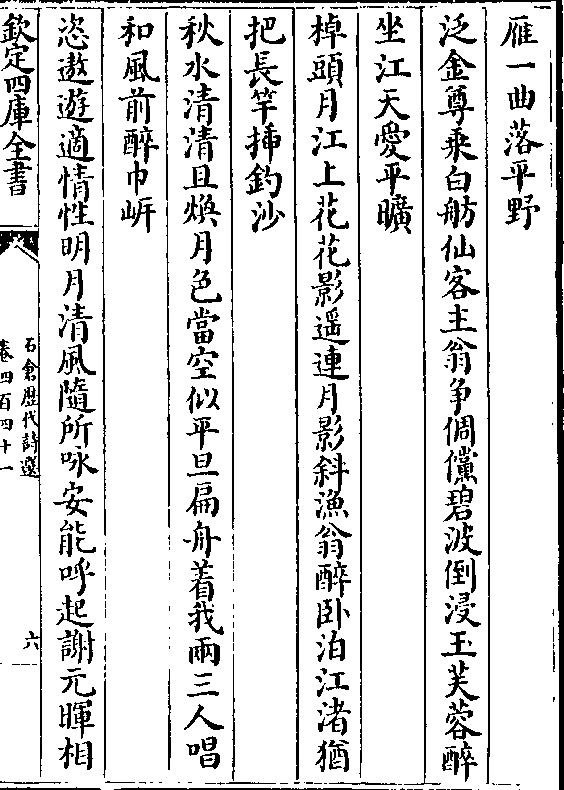 雁一曲落平野
泛金尊乘白舫仙客主翁争倜儻碧波倒浸玉芙蓉醉
坐江天愛平曠
棹頭月江上花花影遥連月影斜漁翁醉卧泊江渚猶
把長竿揷釣沙
秋水清清且煥月色當空似平旦扁舟着我兩三人唱
和風前醉巾岸
恣遨遊適情性明月清風隨所咏安能呼起謝元暉相
欽定四庫全書
石倉歷代詩選
卷四百四十一
六